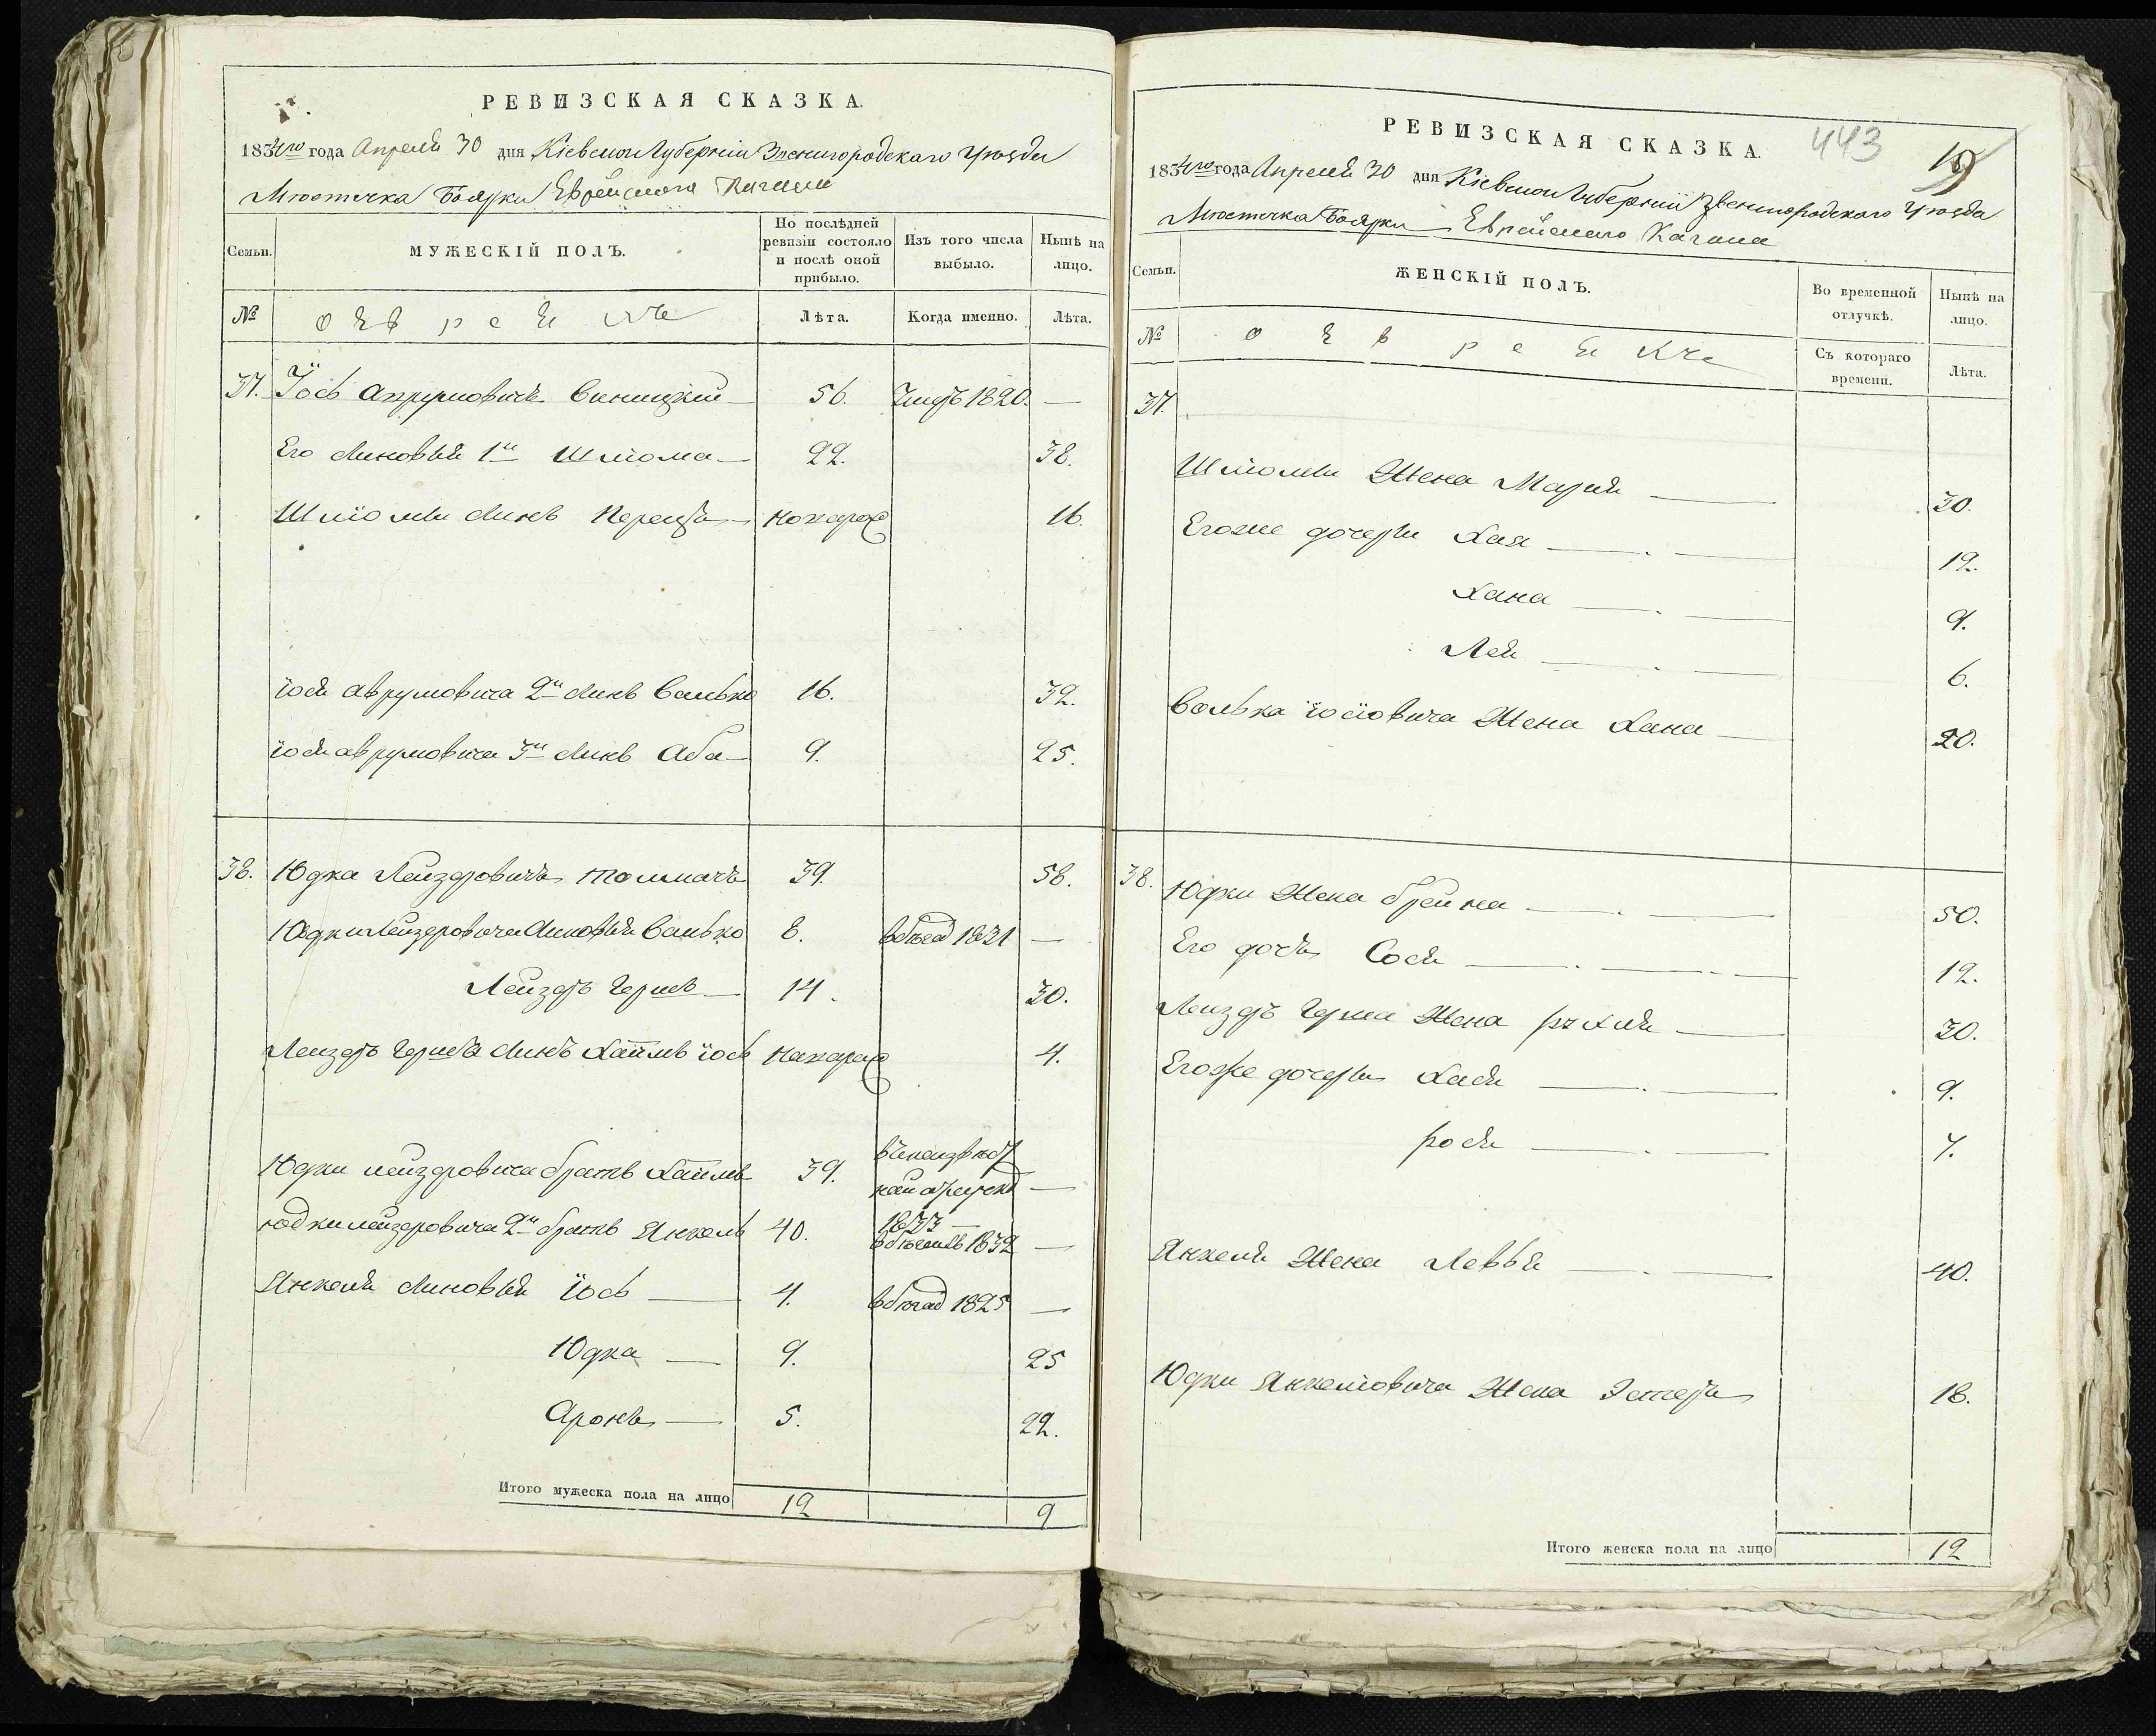 РЕВИЗСКАЯ СКАЗКА.
1834го года Апреля 30 дня Кіевской Губерніи Звенигородскаго Уѣзда
Мѣстечка Боярки Еврейскаго Кагала
Семьи.
МУЖЕСКІЙ ПОЛЪ.
По послѣдней ревизіи состояло и послѣ оной прибыло.
Изъ того числа выбыло.
Нынѣ на лицо.
№
о Евреи
Лѣта.
Когда именно.
Лѣта.
37. Іось Аврумовичъ Виницкий 56. Умеръ 1820. —
Его сыновья 1й Шліома 22. 38.
Шліомы сынъ Перецъ 16.
Іося Аврумовича 2й сынъ Волько 16. 32.
Іося Аврумовича 3й сынъ Аба 9. 25.
38. Юдка Лейзеровичъ Толмачъ 39. 58.
Юдки Лейзеровича сыновья Волько 8. 1831 —
Лейзеръ Гершъ 14. 30.
Лейзеръ Герша сынъ Хаимъ Іось 4.
Юдки Лейзеровича братъ Хаимъ 39. —
1833
Юдки Лейзеровича 2й братъ Янкель 40. 1832 —
Янкеля сыновья Іось 4. 1825 —
Юдка 9. 25
Аронъ 5. 22.
Итого мужеска пола на лицо 12 9
РЕВИЗСКАЯ СКАЗКА.
443
19
1834го года Апреля 30 дня Кіевской Губерніи Звенигородскаго Уѣзда
Мѣстечка Боярки Еврейскаго Кагала
Семьи.
ЖЕНСКІЙ ПОЛЪ.
Во временной отлучкѣ.
Нынѣ на лицо.
№
о Еврейки
Съ котораго времени.
Лѣта.
37.
Шліомы Жена Марія 30.
Егоже дочери Хая 12.
Хана 9.
Лея 6.
Волька Іосіовича Жена Хана 20.
38. Юдки Жена Брейна 50.
Его дочь Сося 12.
Лейзеръ Герша Жена Рухля 30.
Егоже дочери Хася 9.
Рося 7.
Янкеля Жена 40.
Юдки Янкеліовича Жена Эстеръ 18.
Итого женска пола на лицо 12